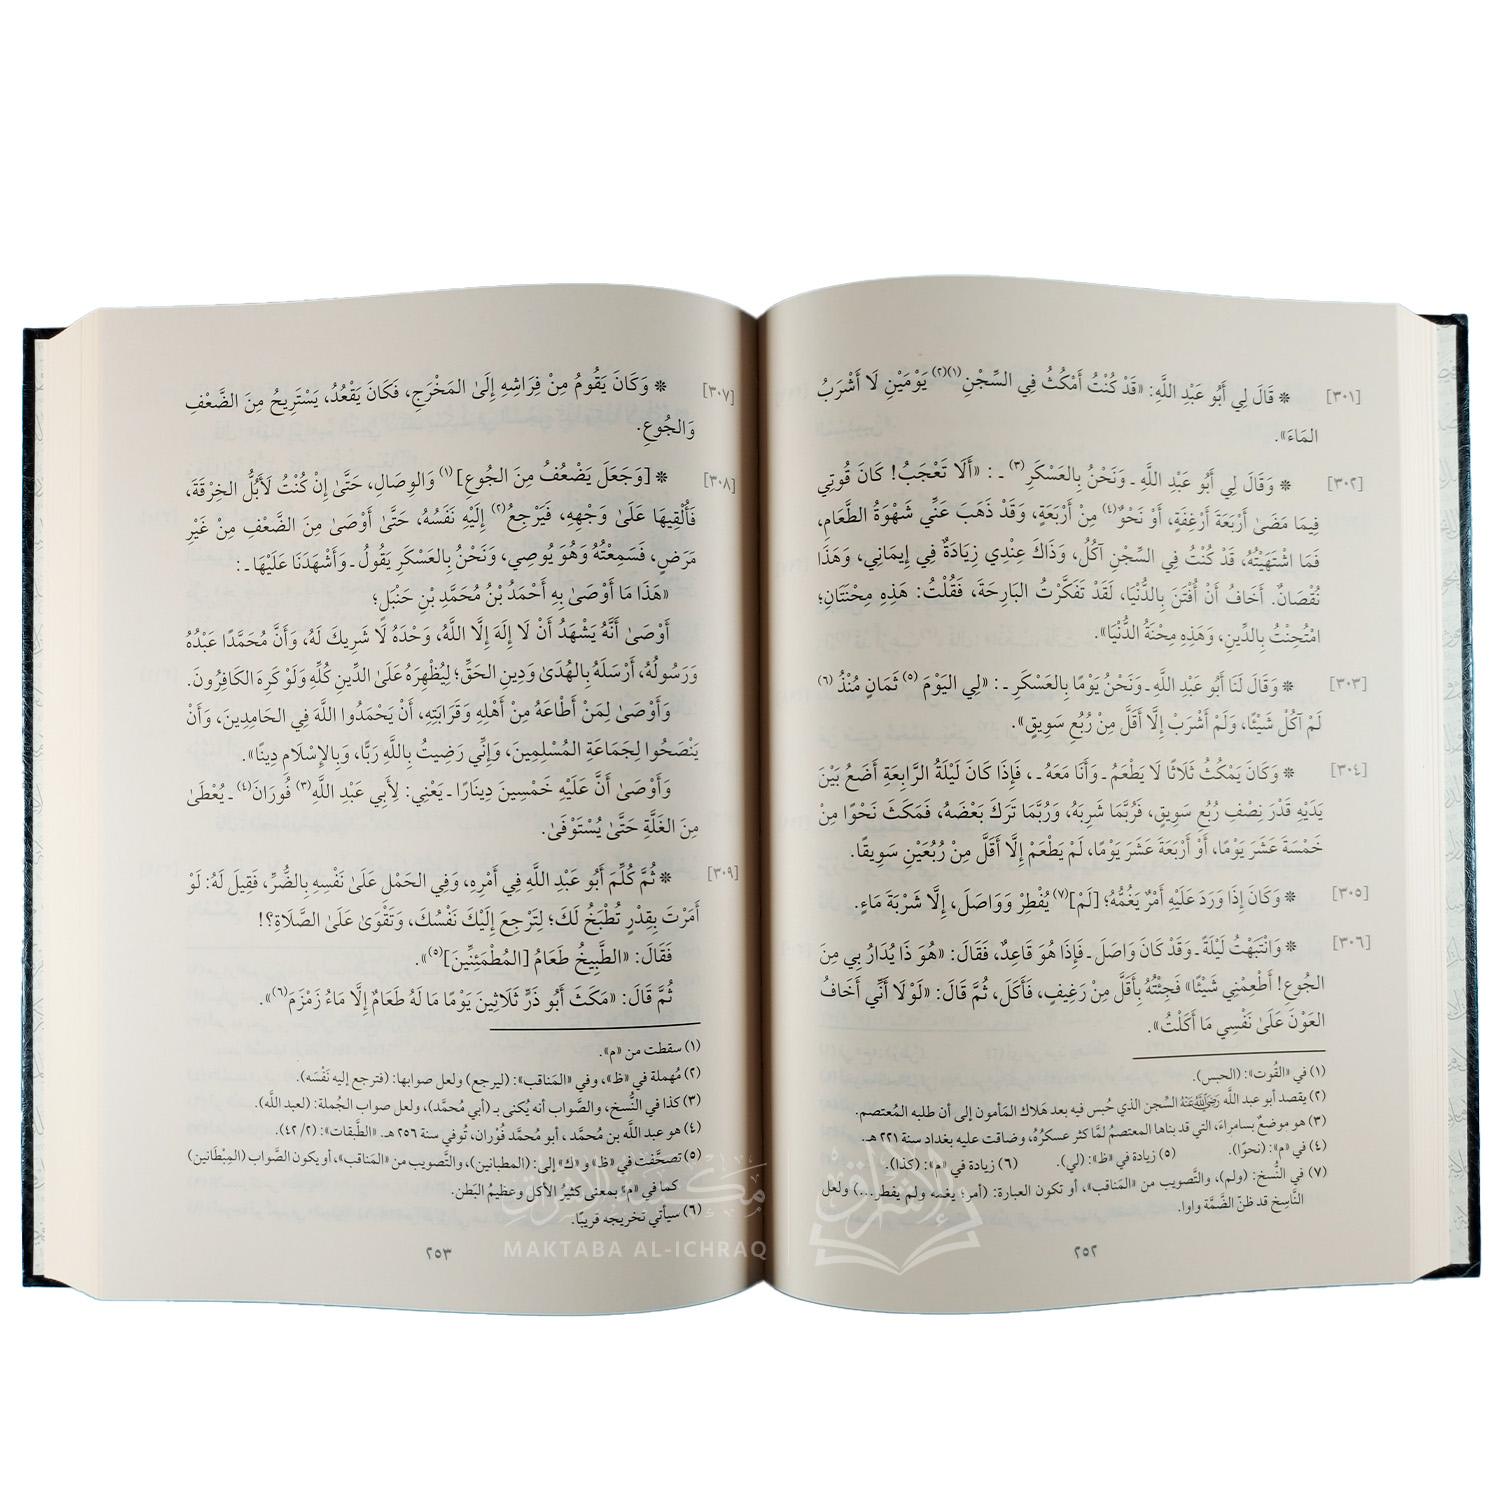 [٣٠١] ❊ قَالَ لِي أَبُو عَبْدِ اللَّهِ: «قَدْ كُنْتُ أَمْكُثُ فِي السِّجْنِ(١)(٢) يَوْمَيْنِ لَا أَشْرَبُ
المَاءَ».
[٣٠٢] ❊ وَقَالَ لِي أَبُو عَبْدِ اللَّهِ ـ وَنَحْنُ بِالعَسْكَرِ(٣) ـ: «أَلَا تَعْجَبُ! كَانَ قُوتِي
فِيمَا مَضَىٰ أَرْبَعَةَ أَرْغِفَةٍ، أَوْ نَحْوٌ(٤) مِنْ أَرْبَعَةٍ، وَقَدْ ذَهَبَ عَنِّي شَهْوَةُ الطَّعَامِ،
فَمَا اشْتَهَيْتُهُ، قَدْ كُنْتُ فِي السِّجْنِ آكُلُ، وَذَاكَ عِنْدِي زِيَادَةٌ فِي إِيمَانِي، وَهَذَا
نُقْصَانٌ. أَخَافُ أَنْ أُفْتَنَ بِالدُّنْيَا، لَقَدْ تَفَكَّرْتُ البَارِحَةَ، فَقُلْتُ: هَذِهِ مِحْنَتَانِ؛
امْتُحِنْتُ بِالدِّينِ، وَهَذِهِ مِحْنَةُ الدُّنْيَا».
[٣٠٣] ❊ وَقَالَ لَنَا أَبُو عَبْدِ اللَّهِ ـ وَنَحْنُ يَوْمًا بِالعَسْكَرِ ـ: «لِي اليَوْمَ(٥) ثَمَانٍ مُنْذُ(٦)
لَمْ آكُلْ شَيْئًا، وَلَمْ أَشْرَبْ إِلَّا أَقَلَّ مِنْ رُبُعِ سَوِيقٍ».
[٣٠٤] ❊ وَكَانَ يَمْكُثُ ثَلَاثًا لَا يَطْعَمُ ـ وَأَنَا مَعَهُ ـ، فَإِذَا كَانَ لَيْلَةُ الرَّابِعَةِ أَضَعُ بَيْنَ
يَدَيْهِ قَدْرَ نِصْفِ رُبُعِ سَوِيقٍ، فَرُبَّمَا شَرِبَهُ، وَرُبَّمَا تَرَكَ بَعْضَهُ، فَمَكَثَ نَحْوًا مِنْ
خَمْسَةَ عَشَرَ يَوْمًا، أَوْ أَرْبَعَةَ عَشَرَ يَوْمًا، لَمْ يَطْعَمْ إِلَّا أَقَلَّ مِنْ رُبُعَيْنِ سَوِيقًا.
[٣٠٥] ❊ وَكَانَ إِذَا وَرَدَ عَلَيْهِ أَمْرٌ يَغُمُّهُ؛ [لَمْ](٧) يُفْطِرْ وَوَاصَلَ، إِلَّا شَرْبَةَ مَاءٍ.
[٣٠٦] ❊ وَانْتَبَهْتُ لَيْلَةً ـ وَقَدْ كَانَ وَاصَلَ ـ فَإِذَا هُوَ قَاعِدٌ، فَقَالَ: «هُوَ ذَا يُدَارُ بِي مِنَ
الجُوعِ! أَطْعِمْنِي شَيْئًا» فَجِئْتُهُ بِأَقَلَّ مِنْ رَغِيفٍ، فَأَكَلَ، ثُمَّ قَالَ: «لَوْلَا أَنِّي أَخَافُ
العَوْنَ عَلَىٰ نَفْسِي مَا أَكَلْتُ».
(١) في «القُوت»: (الحبس).
(٢) يقصد أبو عبد اللَّه رَضِيَ اللَّهُ عَنْهُ السِّجن الذي حُبس فيه بعد هَلاك المَأمون إلى أن طلبه المُعتصم.
(٣) هو موضعٌ بسامراءَ، التي قد بناها المعتصمُ لمَّا كثر عسكرُهُ، وضاقت عليه بغداد سنة ٢٢١ هـ.
(٤) في «م»: (نحوًا). (٥) زيادة في «ظ»: (لي). (٦) زيادة في «م»: (كذا).
(٧) في النُّسخ: (ولم)، والتَّصويب من «المَناقب»، أو تكون العبارة: (أمر؛ يغمه ولم يفطر...) ولعل
النَّاسِخ قد ظنّ الضَّمَّة واوا.
٢٥٢
[٣٠٧] ❊ وَكَانَ يَقُومُ مِنْ فِرَاشِهِ إِلَىٰ المَخْرَجِ، فَكَانَ يَقْعُدُ، يَسْتَرِيحُ مِنَ الضَّعْفِ
وَالجُوعِ.
[٣٠٨] ❊ [وَجَعَلَ يَضْعُفُ مِنَ الجُوعِ](١) وَالوِصَالِ، حَتَّىٰ إِنْ كُنْتُ لَأَبُلُّ الخِرْقَةَ،
فَأُلْقِيهَا عَلَىٰ وَجْهِهِ، فَيَرْجِعُ(٢) إِلَيْهِ نَفَسُهُ، حَتَّىٰ أَوْصَىٰ مِنَ الضَّعْفِ مِنْ غَيْرِ
مَرَضٍ، فَسَمِعْتُهُ وَهُوَ يُوصِي، وَنَحْنُ بِالعَسْكَرِ يَقُولُ ـ وَأَشْهَدَنَا عَلَيْهَا ـ:
«هَذَا مَا أَوْصَىٰ بِهِ أَحْمَدُ بْنُ مُحَمَّدِ بْنِ حَنْبَلٍ؛
أَوْصَىٰ أَنَّهُ يَشْهَدُ أَنْ لَا إِلَهَ إِلَّا اللَّهُ، وَحْدَهُ لَا شَرِيكَ لَهُ، وَأَنَّ مُحَمَّدًا عَبْدُهُ
وَرَسُولُهُ، أَرْسَلَهُ بِالهُدَىٰ وَدِينِ الحَقِّ؛ لِيُظْهِرَهُ عَلَىٰ الدِّينِ كُلِّهِ وَلَوْ كَرِهَ الكَافِرُونَ.
وَأَوْصَىٰ لِمَنْ أَطَاعَهُ مِنْ أَهْلِهِ وَقَرَابَتِهِ، أَنْ يَحْمَدُوا اللَّهَ فِي الحَامِدِينَ، وَأَنْ
يَنْصَحُوا لِجَمَاعَةِ المُسْلِمِينَ، وَإِنِّي رَضِيتُ بِاللَّهِ رَبًّا، وَبِالإِسْلَامِ دِينًا».
وَأَوْصَىٰ أَنَّ عَلَيْهِ خَمْسِينَ دِينَارًا ـ يَعْنِي: لِأَبِي عَبْدِ اللَّهِ(٣) فُورَانَ(٤) ـ يُعْطَىٰ
مِنَ الغَلَّةِ حَتَّىٰ يُسْتَوْفَىٰ.
[٣٠٩] ❊ ثُمَّ كُلِّمَ أَبُو عَبْدِ اللَّهِ فِي أَمْرِهِ، وَفِي الحَمْلِ عَلَىٰ نَفْسِهِ بِالضُّرِّ، فَقِيلَ لَهُ: لَوْ
أَمَرْتَ بِقِدْرٍ تُطْبَخُ لَكَ؛ لِتَرْجِعَ إِلَيْكَ نَفْسُكَ، وَتَقْوَىٰ عَلَىٰ الصَّلَاةِ؟!
فَقَالَ: «الطَّبِيخُ طَعَامُ [المُطْمَئِنِّينَ](٥)».
ثُمَّ قَالَ: «مَكَثَ أَبُو ذَرٍّ ثَلَاثِينَ يَوْمًا مَا لَهُ طَعَامٌ إِلَّا مَاءُ زَمْزَمَ(٦)».
(١) سقطت من «م».
(٢) مُهملة في «ظ»، وفي «المَناقب»: (ليرجع) ولعل صوابها: (فترجع إليه نَفْسَه).
(٣) كذا في النُّسخ، والصَّواب أنه يُكنى بـ (أبي مُحمَّد)، ولعل صواب الجُملة: (لعبد اللَّه).
(٤) هو عبد اللَّه بن مُحمَّد، أبو مُحمَّد فُوْران، تُوفي سنة ٢٥٦ هـ. «الطَّبقات»: (٢/ ٤٢).
(٥) تصحَّفت في «ظ» و«ك» إلى: (المطبانين)، والتَّصويب من «المَناقب»، أو يكون الصَّواب (المِبْطَانين)
كما في «م» بمعنى كثيرُ الأكل وعظيمُ البَطن.
(٦) سيأتي تخريجه قريبًا.
٢٥٣
مكتبة الإشراق
MAKTABA AL-ICHRAQ
الإشراق